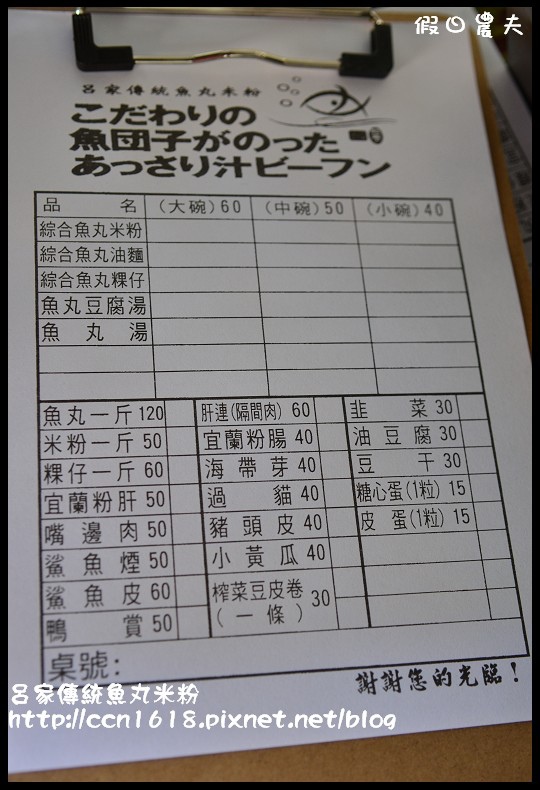 假日農夫
呂家傳統魚丸米粉
こだわりの
魚団子がのった
あっさり汁ビーフン
品名 (大碗)60 (中碗)50 (小碗)40
綜合魚丸米粉
綜合魚丸油麵
綜合魚丸粿仔
魚丸豆腐湯
魚丸湯
魚丸一斤 120 肝連(隔間肉) 60 韭菜 30
米粉一斤 50 宜蘭粉腸 40 油豆腐 30
粿仔一斤 60 海帶芽 40 豆干 30
宜蘭粉肝 50 過貓 40 糖心蛋(1粒) 15
嘴邊肉 50 豬頭皮 40 皮蛋(1粒) 15
鯊魚煙 50 小黃瓜 40
鯊魚皮 60 榨菜豆皮卷(一條) 30
鴨賞 50
桌號:
謝謝您的光臨!
呂家傳統魚丸米粉
http://ccn1618.pixnet.net/blog